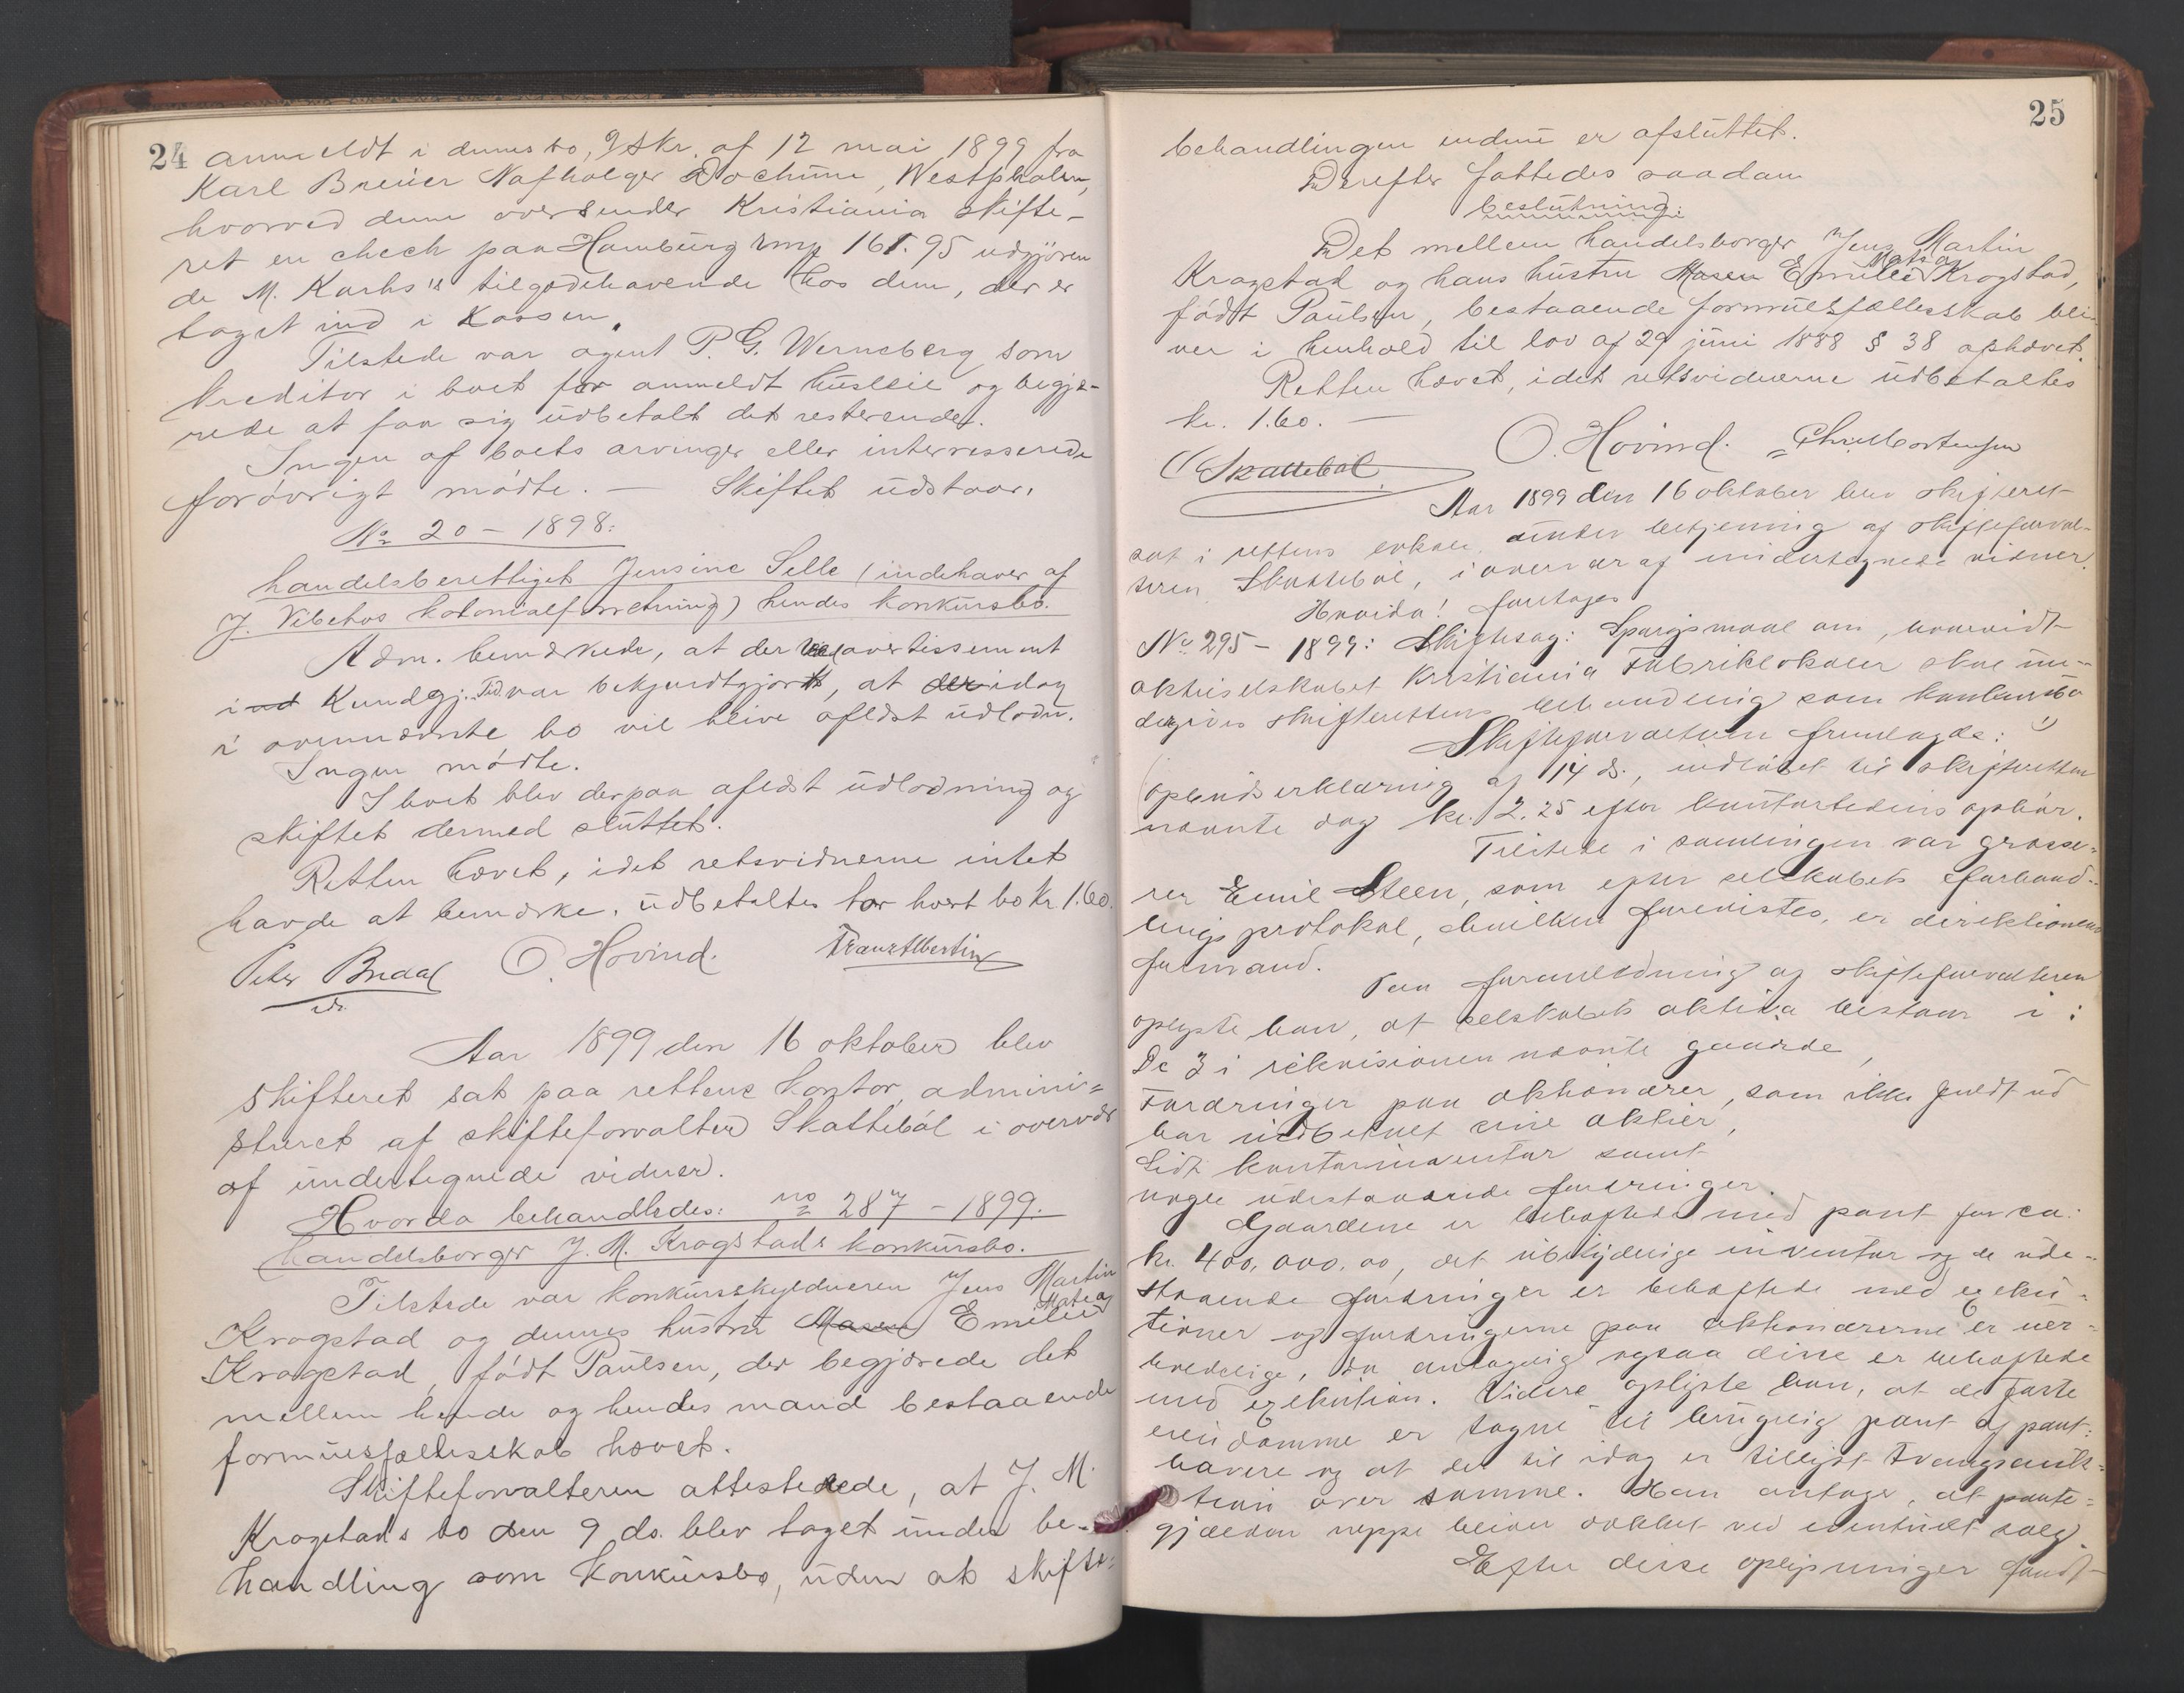 24
anmeldt i dennes bo, 2 skr. af 12 mai 1899 fra
Karl Breuer Nafholger Bochum, Westphalen,
hvorved denn oversender Kristiania skifte-
ret en check paa Hamburg rmk 161.95 udgjören
de M. Karhs's tilgodehavende hos dem, der er
taget ind i Kassen.
Tilstede var agent P. G. Werneberg som
kreditor i boet for anmeldt husleie og begjæ-
rede at faa sig udbetalt det resterende.
Ingen af boets arvinger eller interesserede
forövrigt mödte. — Skiftet udstaar.
No 20 – 1898:
handelsberettiget Jensine Selle (indehaver af
J. Vibetos kolonialforretning) hendes konkursbo.
Adm. bemærkede, at der ved avertissement
ind Kundgj. Tid. var bekjendtgjort, at der idag
i ovennævnte bo vil blive afledst udlodn.
Ingen mödte.
I boet blev derpaa afledst udlodning og
skiftet dermed sluttet.
Retten hævet, idet retsvidnerne intet
havde at bemærke. udbetaltes for hvert bo Kr. 1.60.
Peter Bredal O. Hovind. Franz Albertin
Aar 1899 den 16 oktober blev
skifteret sat paa rettens kontor, admini-
streret af skifteforvalter Skattebøl i overvær
af undertegnede vidner.
Hvorda behandledes: no 287 – 1899.
handelsborger J. M. Krogstads konkursbo.
Tilstede var konkursskyldneren Jens Martin
Krogstad og dennes hustru Maren Emilie Matea
Krogstad, födt Paulsen, der begjærede det
mellem hende og hendes mand bestaaende
formuesfællesskab hævet.
Skifteforvalteren attesterede, at J. M.
Krogstads bo den 9 ds. blev taget under be-
handling som konkursbo, uden at skifte-
25
behandlingen endnu er afsluttet.
Derefter fattedes saadan
beslutning:
Det mellem handelsborger Jens Martin
Krogstad og hans hustru Maren Emilie Matea Krogstad,
födt Paulsen, bestaaende formuesfællesskab bli-
ver i henhold til lov af 29 juni 1888 § 38 ophævet.
Retten hævet, idet retsvidnerne udbetaltes
kr. 1.60. —
Skattebøl O. Hovind. Chr. Mortensen
Aar 1899 den 16 oktober blev skifteret
sat i rettens lokale under betjening af skifteforval-
teren Skattebøl, i overvær af undertegnede vidner.
Hvorda! foretages
No 295 – 1899: Skiftesag: Spørgsmaal om, hvorvidt
aktieselskabet Kristiania Fabriklokaler skal un-
dergives skifterettens behandling som konkursbo
Skifteforvalteren fremlagde:
opbudserklæring af 14 ds., indløbet til skifteretten
nævnte dag kl. 2.25 efter kontortidens ophør.
Tilstede i samlingen var grosse-
rer Emil Steen, som efter selskabets forhand-
lingsprotokol, hvilken forevistes, er direktionens
formand.
Paa foranledning af skifteforvalteren
oplyste han, at selskabets aktiva bestaar i:
De 3 i rekvisionen nævnte gaarde,
Fordringer paa aktionærer, som ikke fuldt ud
har indbetalt sine aktier,
Lidt kontorinventar samt
nogle udestaaende fordringer.
Gaardene er behæftede med pant for ca.
kr. 400,000.00, det ubetydelige inventar og de ude-
staaende fordringer er behæftede med exeku-
tioner og fordringerne paa aktionærerne er uer-
holdelige, da antagelig ogsaa disse er behæftede
med exekution. Videre oplyste han, at de faste
eiendomme er tagne til brugelig pant af pant-
havere og at der til idag er tillyst tvangsauk-
tion over samme. Han antager, at pante-
gjælden neppe bliver dækket ved eventuelt salg.
Efter disse oplysninger fandt